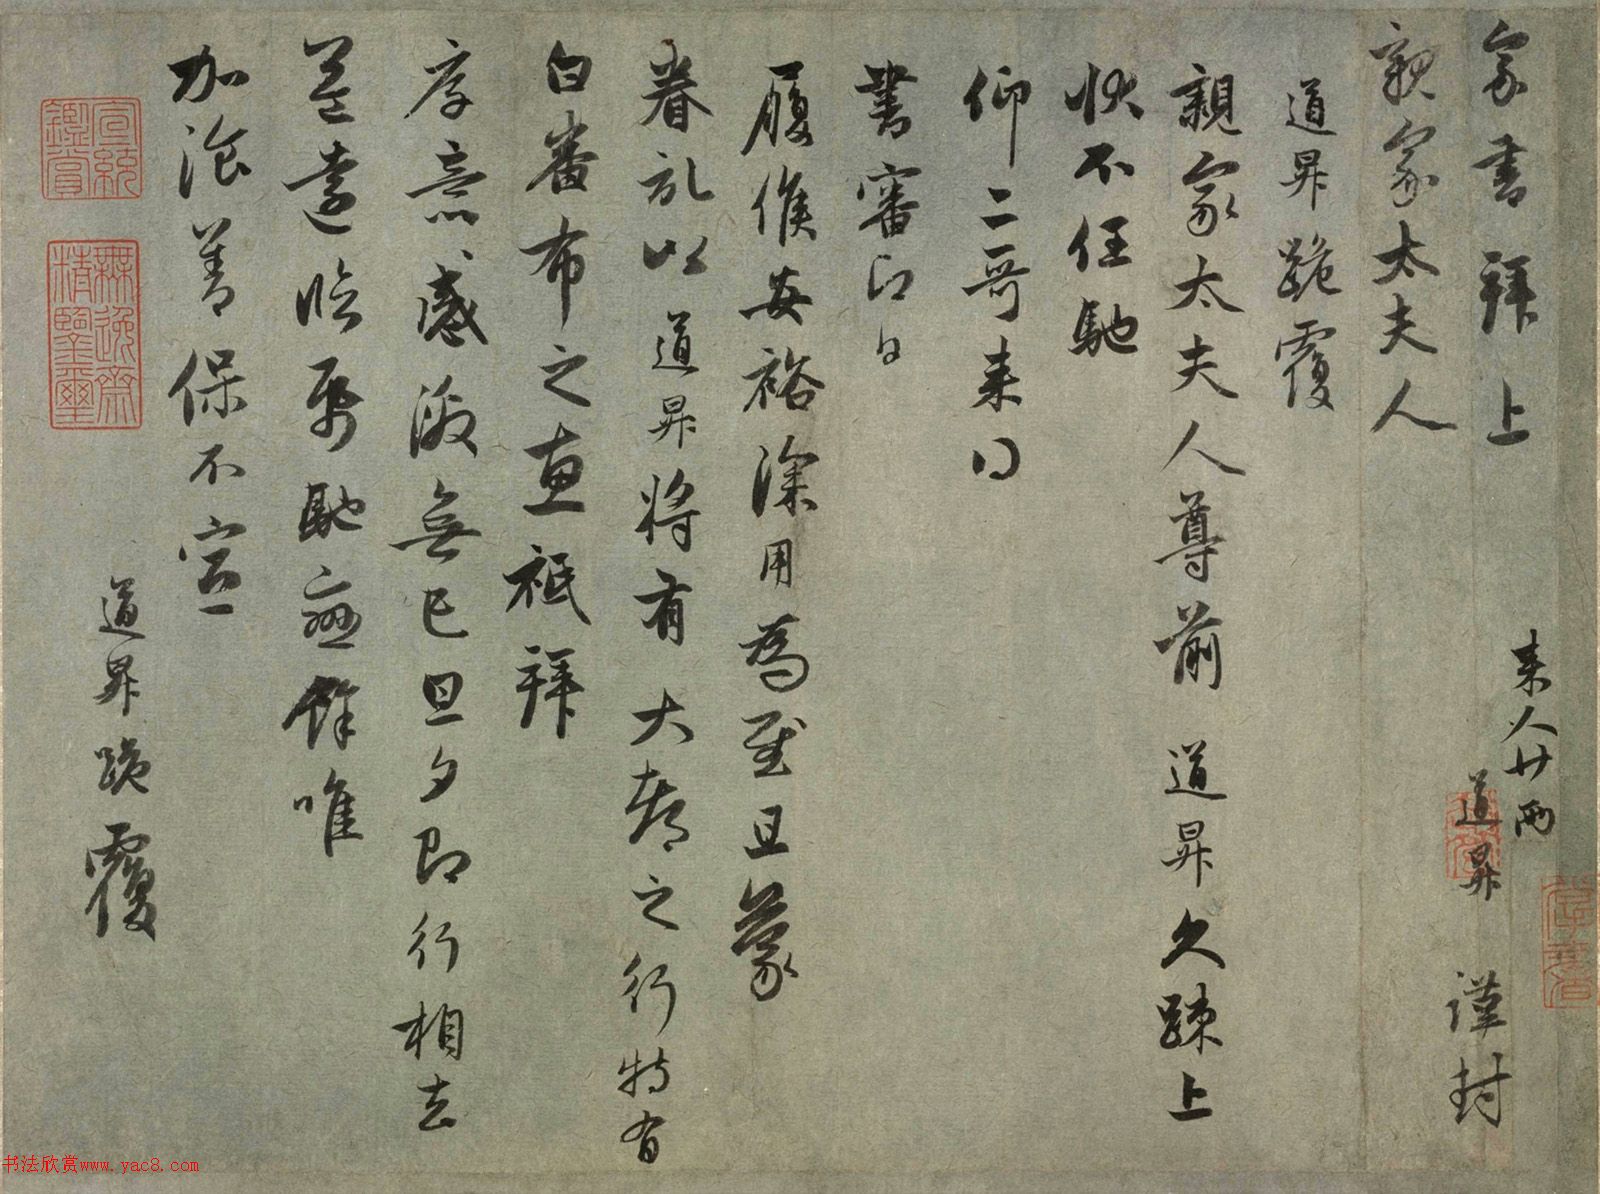 家書拜上
親家太夫人
来人廿兩
道昇 謹封
道昇跪覆
親家太夫人尊前 道昇久疎上
狀不任馳
仰二哥来得
書審即日
履候安裕深用為慰且蒙
眷記以道昇將有大都之行特有
白番布之惠祗拜
厚意感激無已旦夕即行相去
益遠臨
加飡善保不宣
道昇跪覆
宣統鑑賞
無逸齋精鑒璽
书法欣赏www.yac8.com